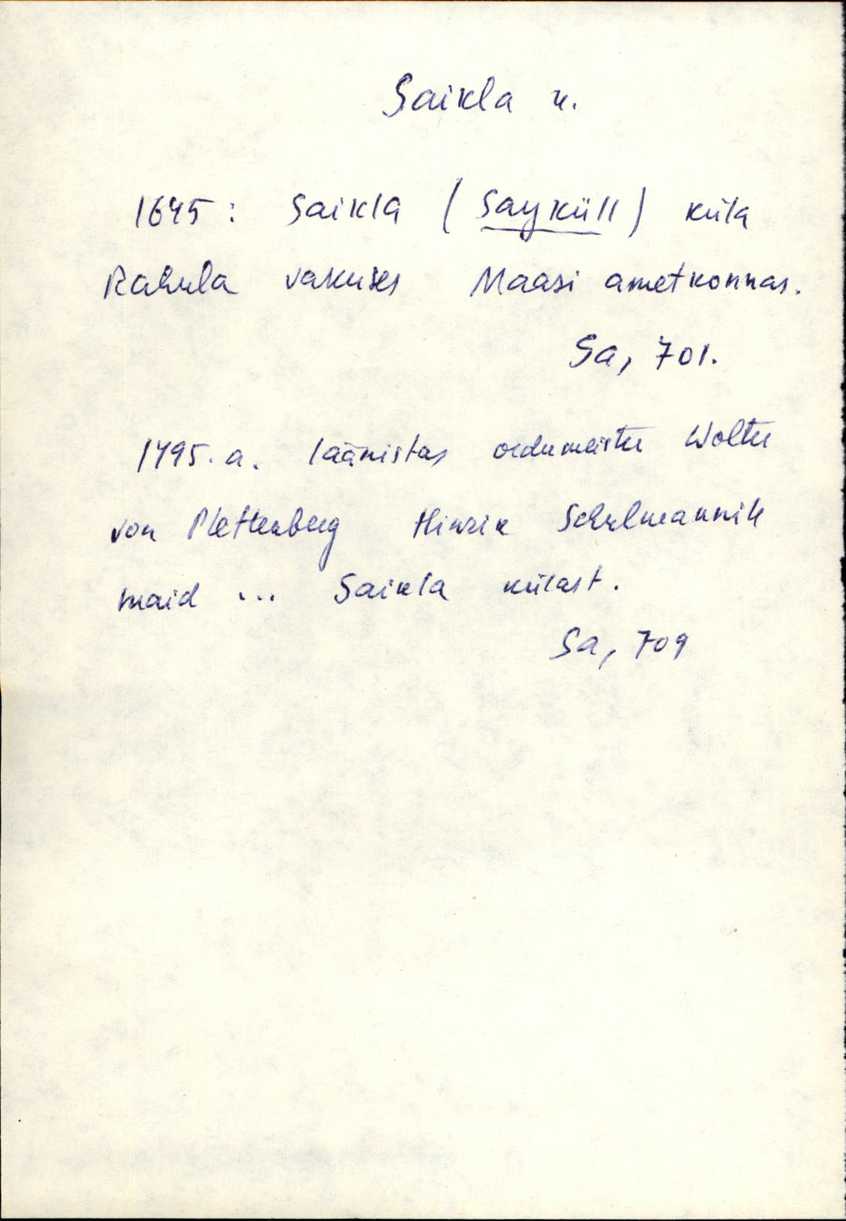 Saikla k.
1645: Saikla (Sayküll) küla
Rahula vakuses Maasi ametkonnas.
Sa, 701.
1495. a. läänistas ordumeister Wolter
von Plettenberg Hinrik Schulmannile
maid ... Saikla külast.
Sa, 709